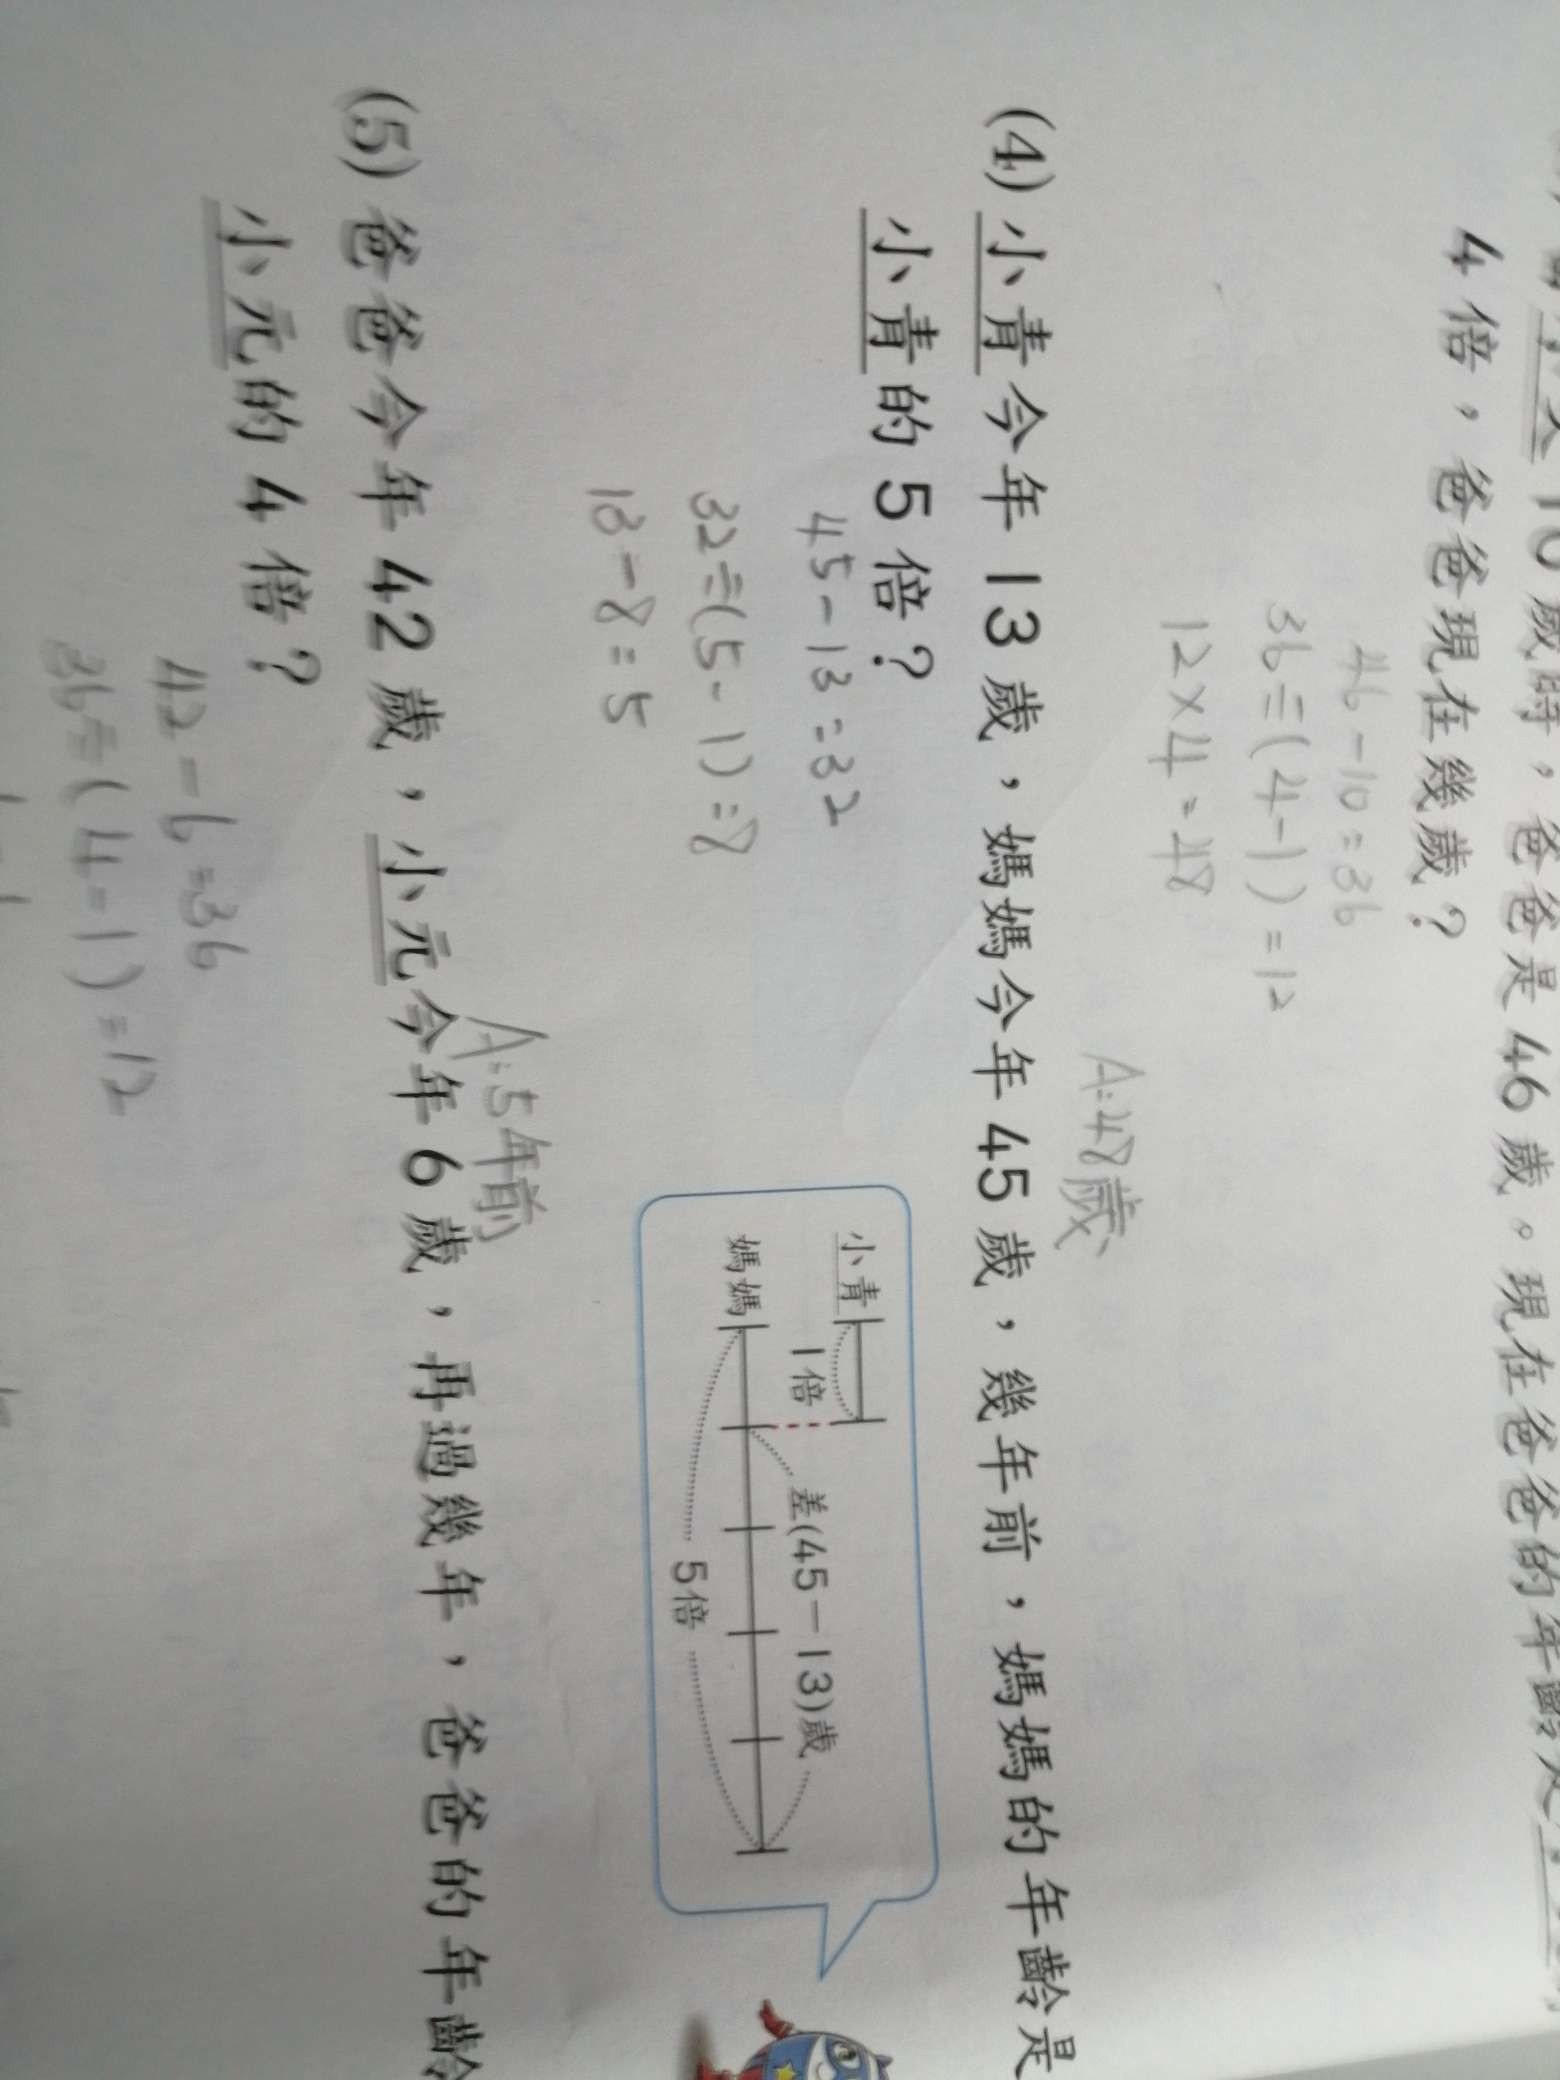 10歲時，爸爸是46歲。現在爸爸的年齡是
4倍，爸爸現在幾歲？
46-10=36
36÷(4-1)=12
12×4=48
A:48歲
(4) 小青今年13歲，媽媽今年45歲，幾年前，媽媽的年齡是
小青的5倍？
45-13=32
32÷(5-1)=8
13-8=5
A:5年前
小青
1倍
差(45－13)歲
媽媽
5倍
(5) 爸爸今年42歲，小元今年6歲，再過幾年，爸爸的年齡
小元的4倍？
42-6=36
36÷(4-1)=12